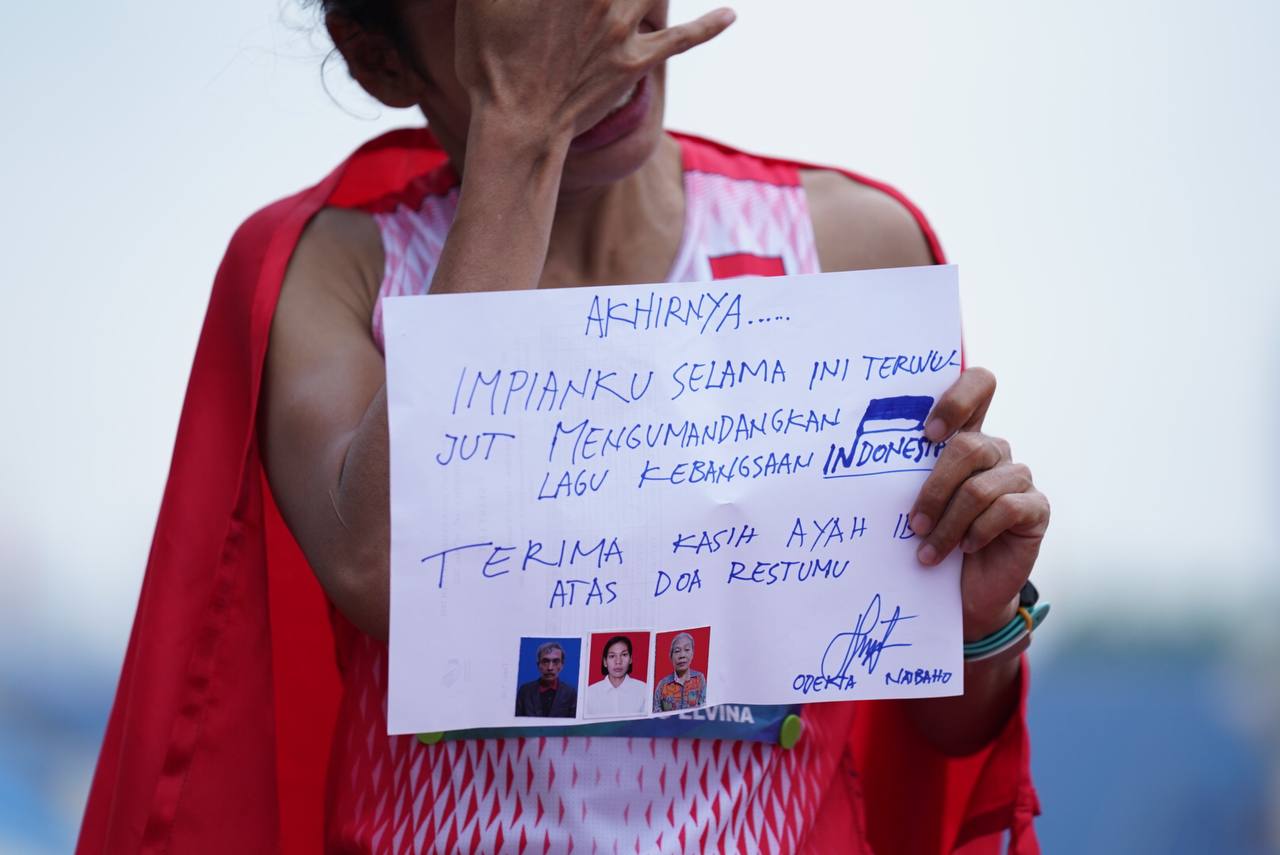 AKHIRNYA.....
IMPIANKU SELAMA INI TERWU-
JUT MENGUMANDANGKAN
LAGU KEBANGSAAN INDONESIA
TERIMA KASIH AYAH
ATAS DOA RESTUMU
ODEKTA NAIBAHO
ELVINA